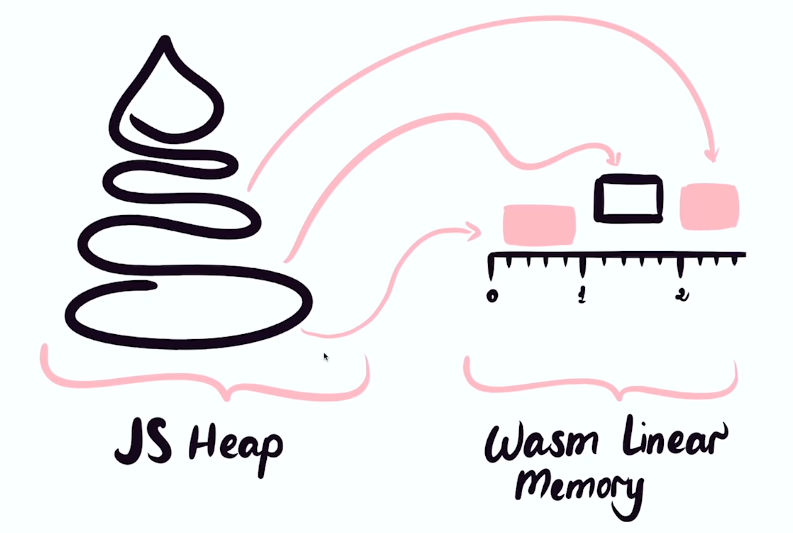 0 1 2
JS Heap
Wasm Linear
Memory